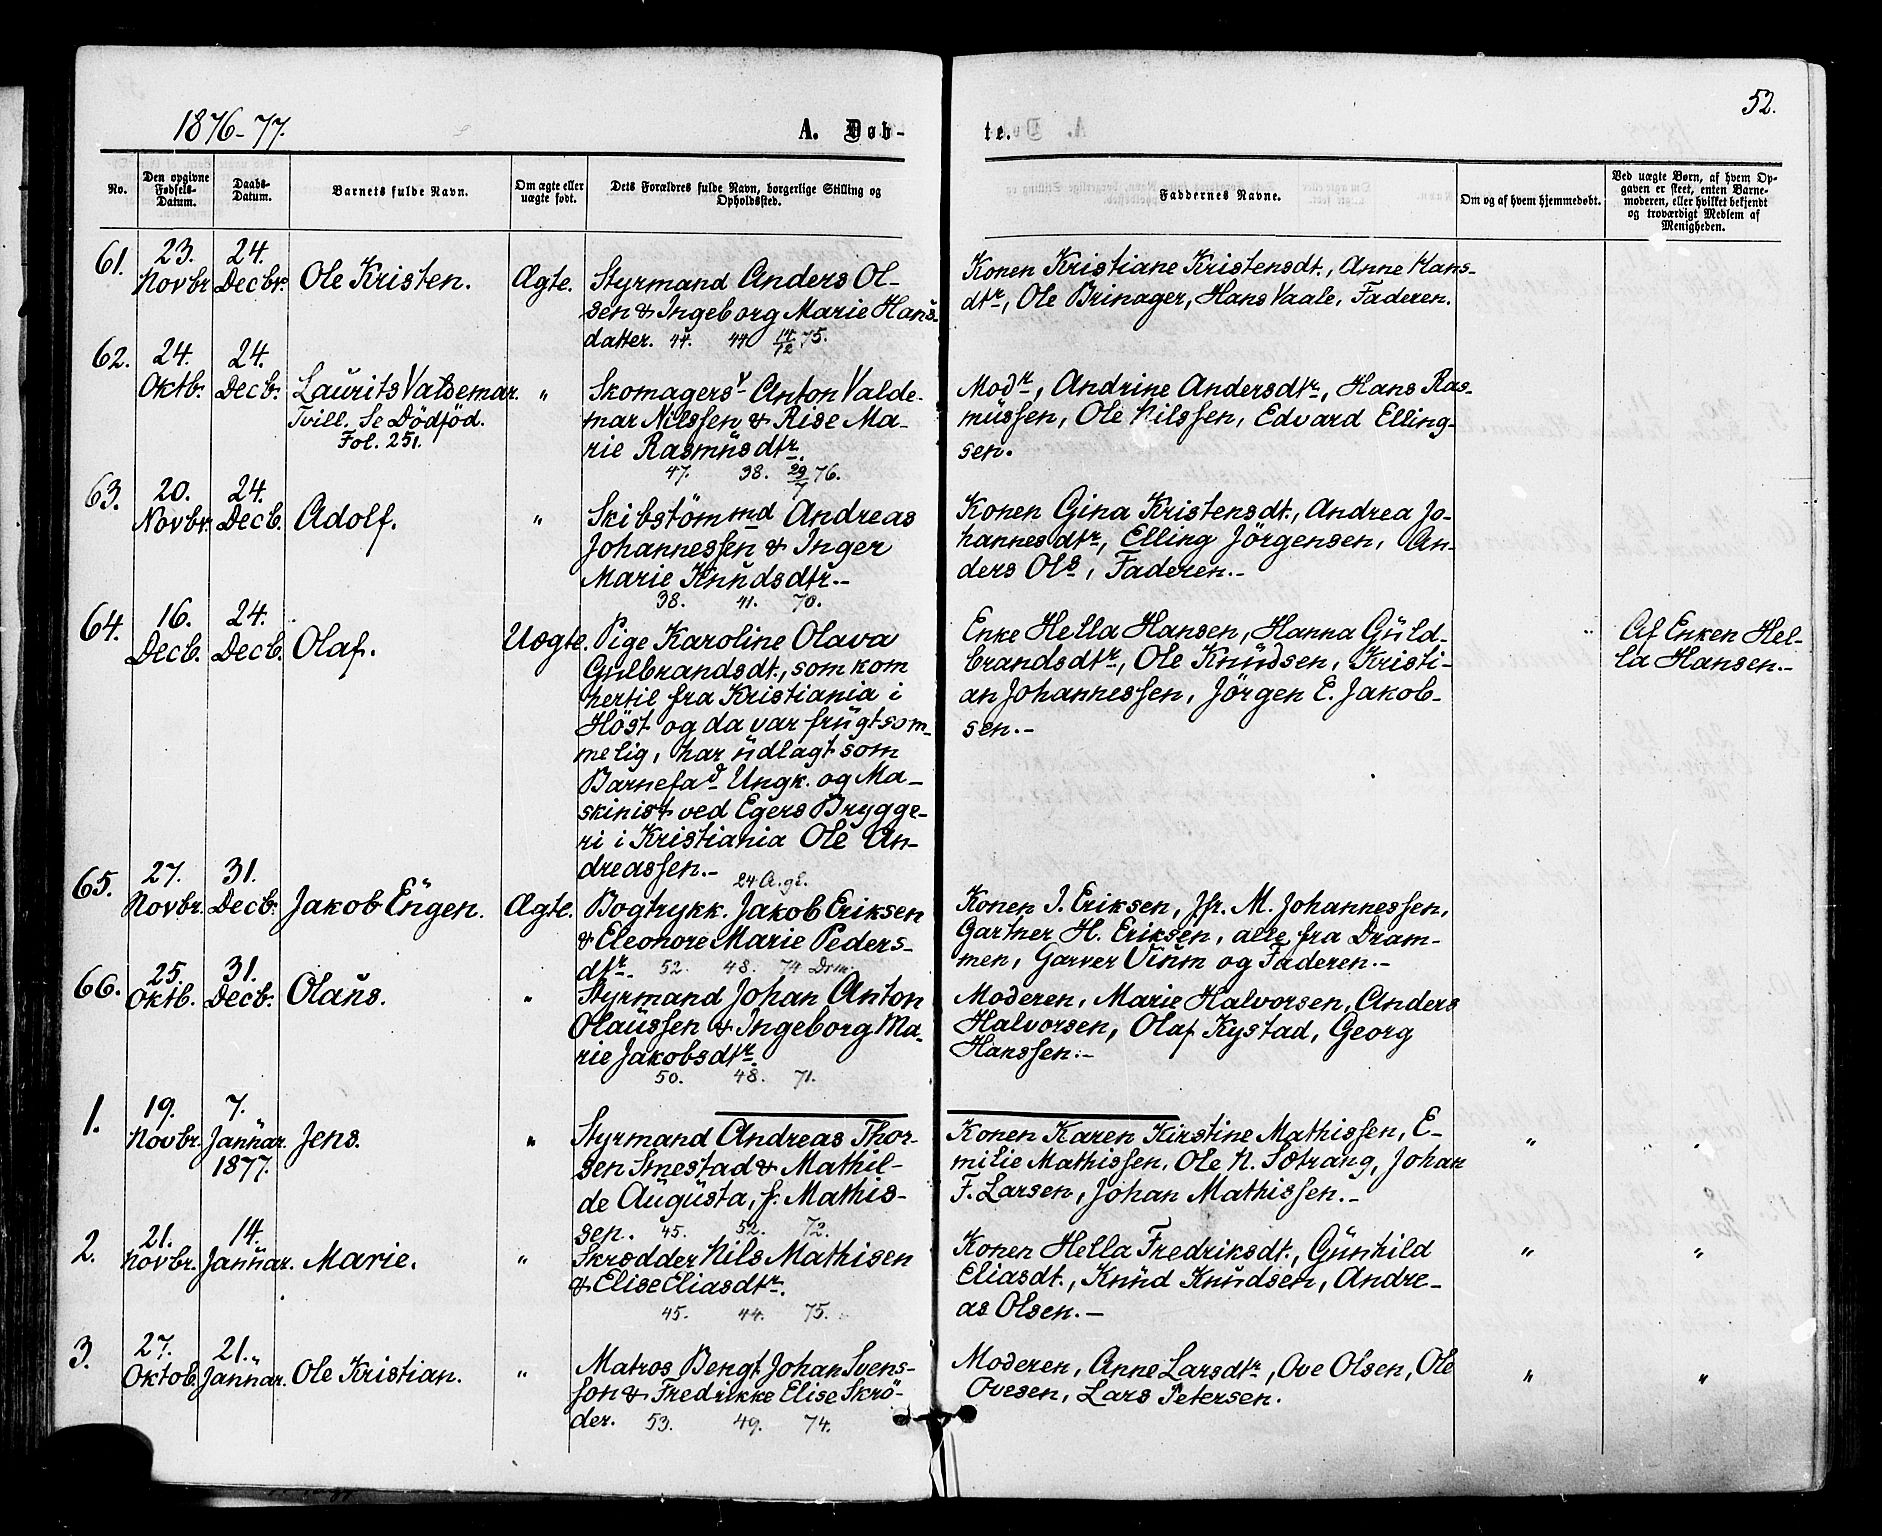 1876-77.
A. Døb-
te.
52.
No.
Den opgivne Fødsels-Datum.
Daabs-Datum.
Barnets fulde Navn.
Om ægte eller uægte født.
Dets Forældres fulde Navn, borgerlige Stilling og Opholdssted.
Faddernes Navne.
Om og af hvem hjemmedøbt.
Ved uægte Børn, af hvem Op-
gaven er skeet, enten Barne-
moderen, eller hvilket bekjendt
og troværdigt Medlem af
Menigheden.
61.
23. Novbr.
24. Decbr.
Ole Kristen.
Ægte.
Styrmand Anders Ol-
sen & Ingeborg Marie Hans
datter. 44. 44 14/12 75.
Konen Kristiane Kristensdt., Anne Hans-
dtr, Ole Brinager, Hans Vaale, Faderen.
62.
24. Oktb.
24. Decb.
Laurits Valdemar.
Tvill. Se Dödföd.
Fol. 251.
"
Skomagersv Anton Valde-
mar Nilssen & Rise Ma-
rie Rasmusdtr.
47. 38. 29/7 76.
Modr, Andrine Andersdtr, Hans Ras-
mussen, Ole Nilssen, Edvard Elling-
sen.
63.
20. Novbr.
24. Decb.
Adolf.
"
Skibstömmd Andreas
Johannessen & Inger
Marie Knudsdtr.-
38. 41. 70.
Konen Gina Kristensdt., Andrea Jo-
hannesdtr, Elling Jörgensen, An-
ders Ols, Faderen.-
64.
16. Decb.
24. Decb.
Olaf.
Uægte.
Pige Karoline Olava
Gulbrandsdt., som kom
hertil fra Kristiania i
Höst og da var frugtsom-
melig, har udlagt som
Barnefad Ungk. og Ma-
skinist ved Egers Brygge-
ri i Kristiania Ole An-
dreassen.- 24 A. gl.
Enke Hella Hansen, Hanna Guld-
brandsdtr, Ole Knudsen, Kristi-
an Johannessen, Jörgen E. Jakob-
sen.-
"
Af Enken Hel-
la Hansen.-
65.
27. Novbr.
31. Decb.
Jakob Engen.
Ægte.
Bogtrykk. Jakob Eriksen
& Eleonore Marie Peders-
dtr. 52. 48. 74 Drm.
Konen J. Eriksen, Jfr. M. Johannessen,
Gartner H. Eriksen, alle fra Dram-
men, Garver Vinm og Faderen.-
66.
25. Oktb.
31. Decb.
Olaus.
"
Styrmand Johan Anton
Olaussen & Ingeborg Ma-
rie Jakobsdtr.
50. 48. 71.
Moderen, Marie Halvorsen, Anders
Halvorsen, Olaf Kystad, Georg
Hanssen.-
1.
19. Novbr.
7. Januar. 1877.
Jens.
"
Styrmand Andreas Thor-
sen Smestad & Mathil-
de Augusta, f. Mathis-
sen. 45. 52. 72.
Konen Karen Kirstine Mathissen, E-
milie Mathissen, Ole N. Sætrang, Johan
F. Larsen, Johan Mathissen.-
"
"
2.
21. Novbr.
14. Januar.
Marie.
"
Skrædder Nils Mathisen
& Elise Eliasdtr.
45. 44. 75.
Konen Hella Fredriksdt., Gunhild
Eliasdt., Knud Knudsen, Andre-
as Olsen.-
"
"
3.
27. Oktob.
21. Januar.
Ole Kristian.
"
Matros Bengt Johan Svens-
son & Fredrikke Elise Skrö-
der. 53. 49. 74.
Moderen, Anne Larsdtr, Ove Olsen, Ole
Ovesen, Lars Petersen.
"
"